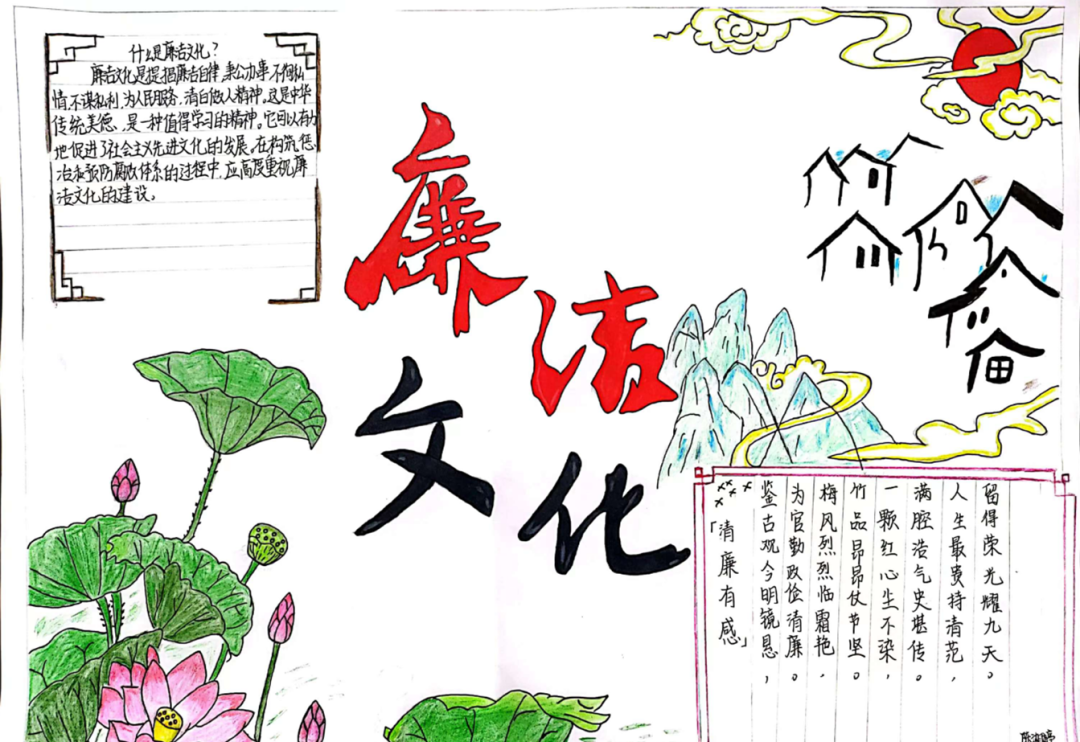 什么是廉洁文化?
廉洁文化是提倡廉洁自律,秉公办事,不徇私
情,不谋私利,为人民服务,清白做人精神。这是中华
传统美德,是一种值得学习的精神。它可以有力
地促进了社会主义先进文化的发展。在构筑惩
治和预防腐败体系的过程中,应高度重视廉
洁文化的建设。
廉洁
文化
「清廉有感」
鉴古观今明镜悬,
为官勤政俭清廉。
梅风烈烈临霜艳,
竹品昂昂仗节坚。
一颗红心生不染,
满腔浩气史堪传。
人生最贵持清范,
留得荣光耀九天。